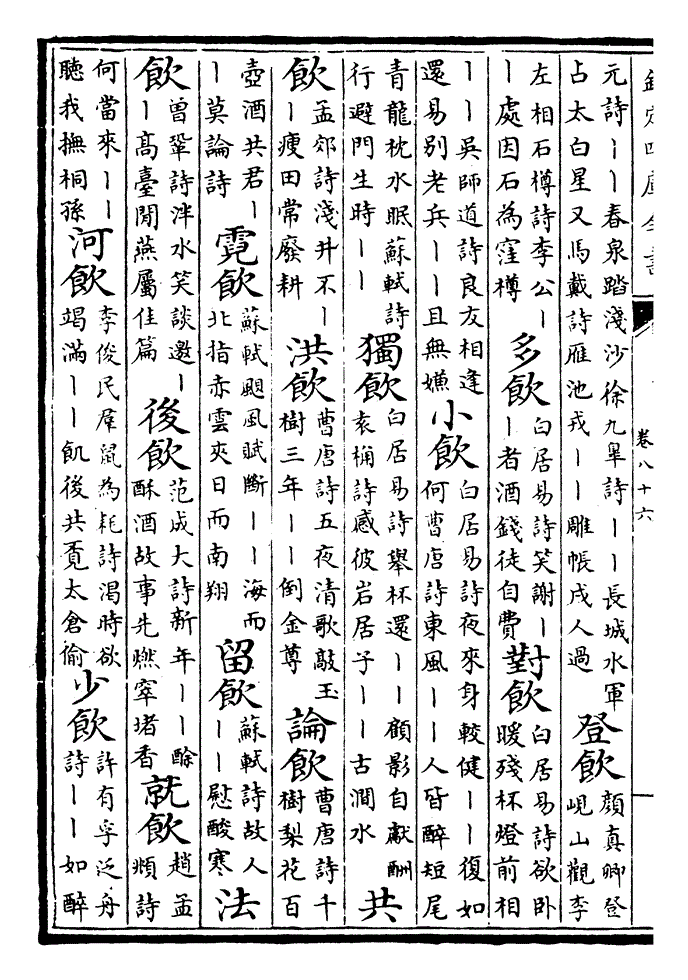 欽定四庫全書 卷八十六
元詩丨丨春泉踏淺沙徐九皐詩丨丨長城水軍占太白星又馬戴詩雁池戎丨丨雕帳戍人過登飲顔真卿登峴山觀李
左相石樽詩李公丨丨處因石為窪樽多飲白居易詩笑謝丨丨者酒錢徒自費對飲白居易詩欲卧暖殘杯燈前相
丨丨吳師道詩良友相逢還易别老兵丨丨且無嫌小飲白居易詩夜來身較健丨丨復如何曹唐詩東風丨丨人皆醉短尾
青龍枕水眠蘇軾詩行避門生時丨丨獨飲白居易詩舉杯還丨丨顧影自獻酬袁桷詩感彼岩居子丨丨古澗水共
飲孟郊詩淺井不丨丨瘦田常廢耕洪飲曹唐詩五夜清歌敲玉樹三年丨丨倒金尊論飲曹唐詩十樹梨花百
壺酒共君丨丨莫論詩霓飲蘇軾颶風賦斷丨丨海而北指赤雲夾日而南翔留飲蘇軾詩故人丨丨慰酸寒法
飲曾鞏詩泮水笑談邀丨丨高臺閒燕屬佳篇後飲范成大詩新年丨丨酴酥酒故事先燃窣堵香就飲趙孟頫詩
何當來丨丨聴我撫桐孫河飲李俊民羣鼠為耗詩渴時欲竭滿丨丨飢後共覔太倉偷少飲許有孚泛舟詩丨丨如醉